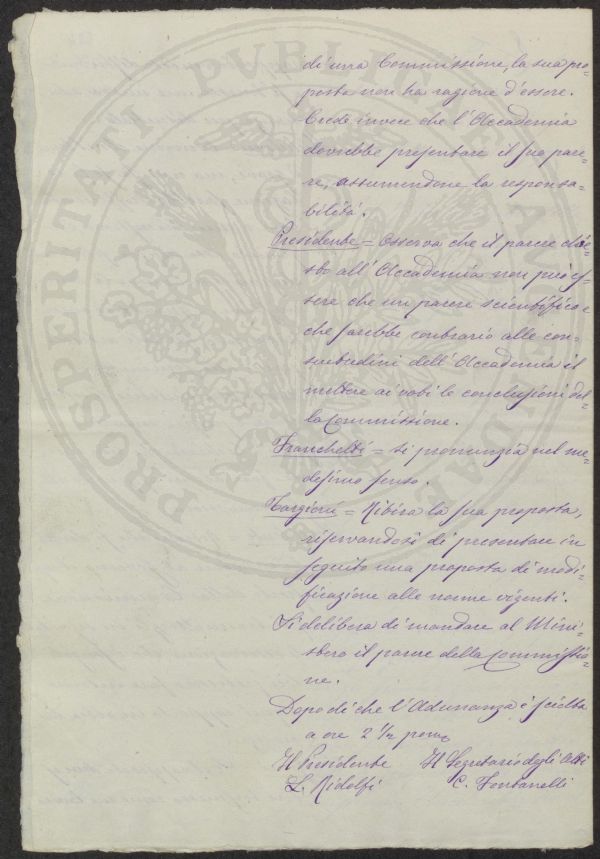 di una Commissione, la sua pro=
posta non ha ragione d'essere.
Crede invece che l'Accademia
dovrebbe presentare il suo pare=
re, assumendone la responsa=
bilità.
Presidente = Osserva che il parere chie=
sto all'Accademia non può es=
sere che un parere scientifico e
che sarebbe contrario alle con=
suetudini dell'Accademia il
mettere ai voti le conclusioni del=
la Commissione.
Franchetti = si pronunzia nel me=
desimo senso.
Targioni = Ritira la sua proposta,
riservandosi di presentare in
seguito una proposta di modi=
ficazione alle norme vigenti.
Si delibera di mandare al Mini=
stero il parere della Commissio=
ne.
Dopo di che l'Adunanza è sciolta
a ore 2 1/2 pom.
Il Presidente Il Segretario degli Atti
L. Ridolfi C. Fontanelli
PROSPERITATI PVBLICAE AVGENDAE